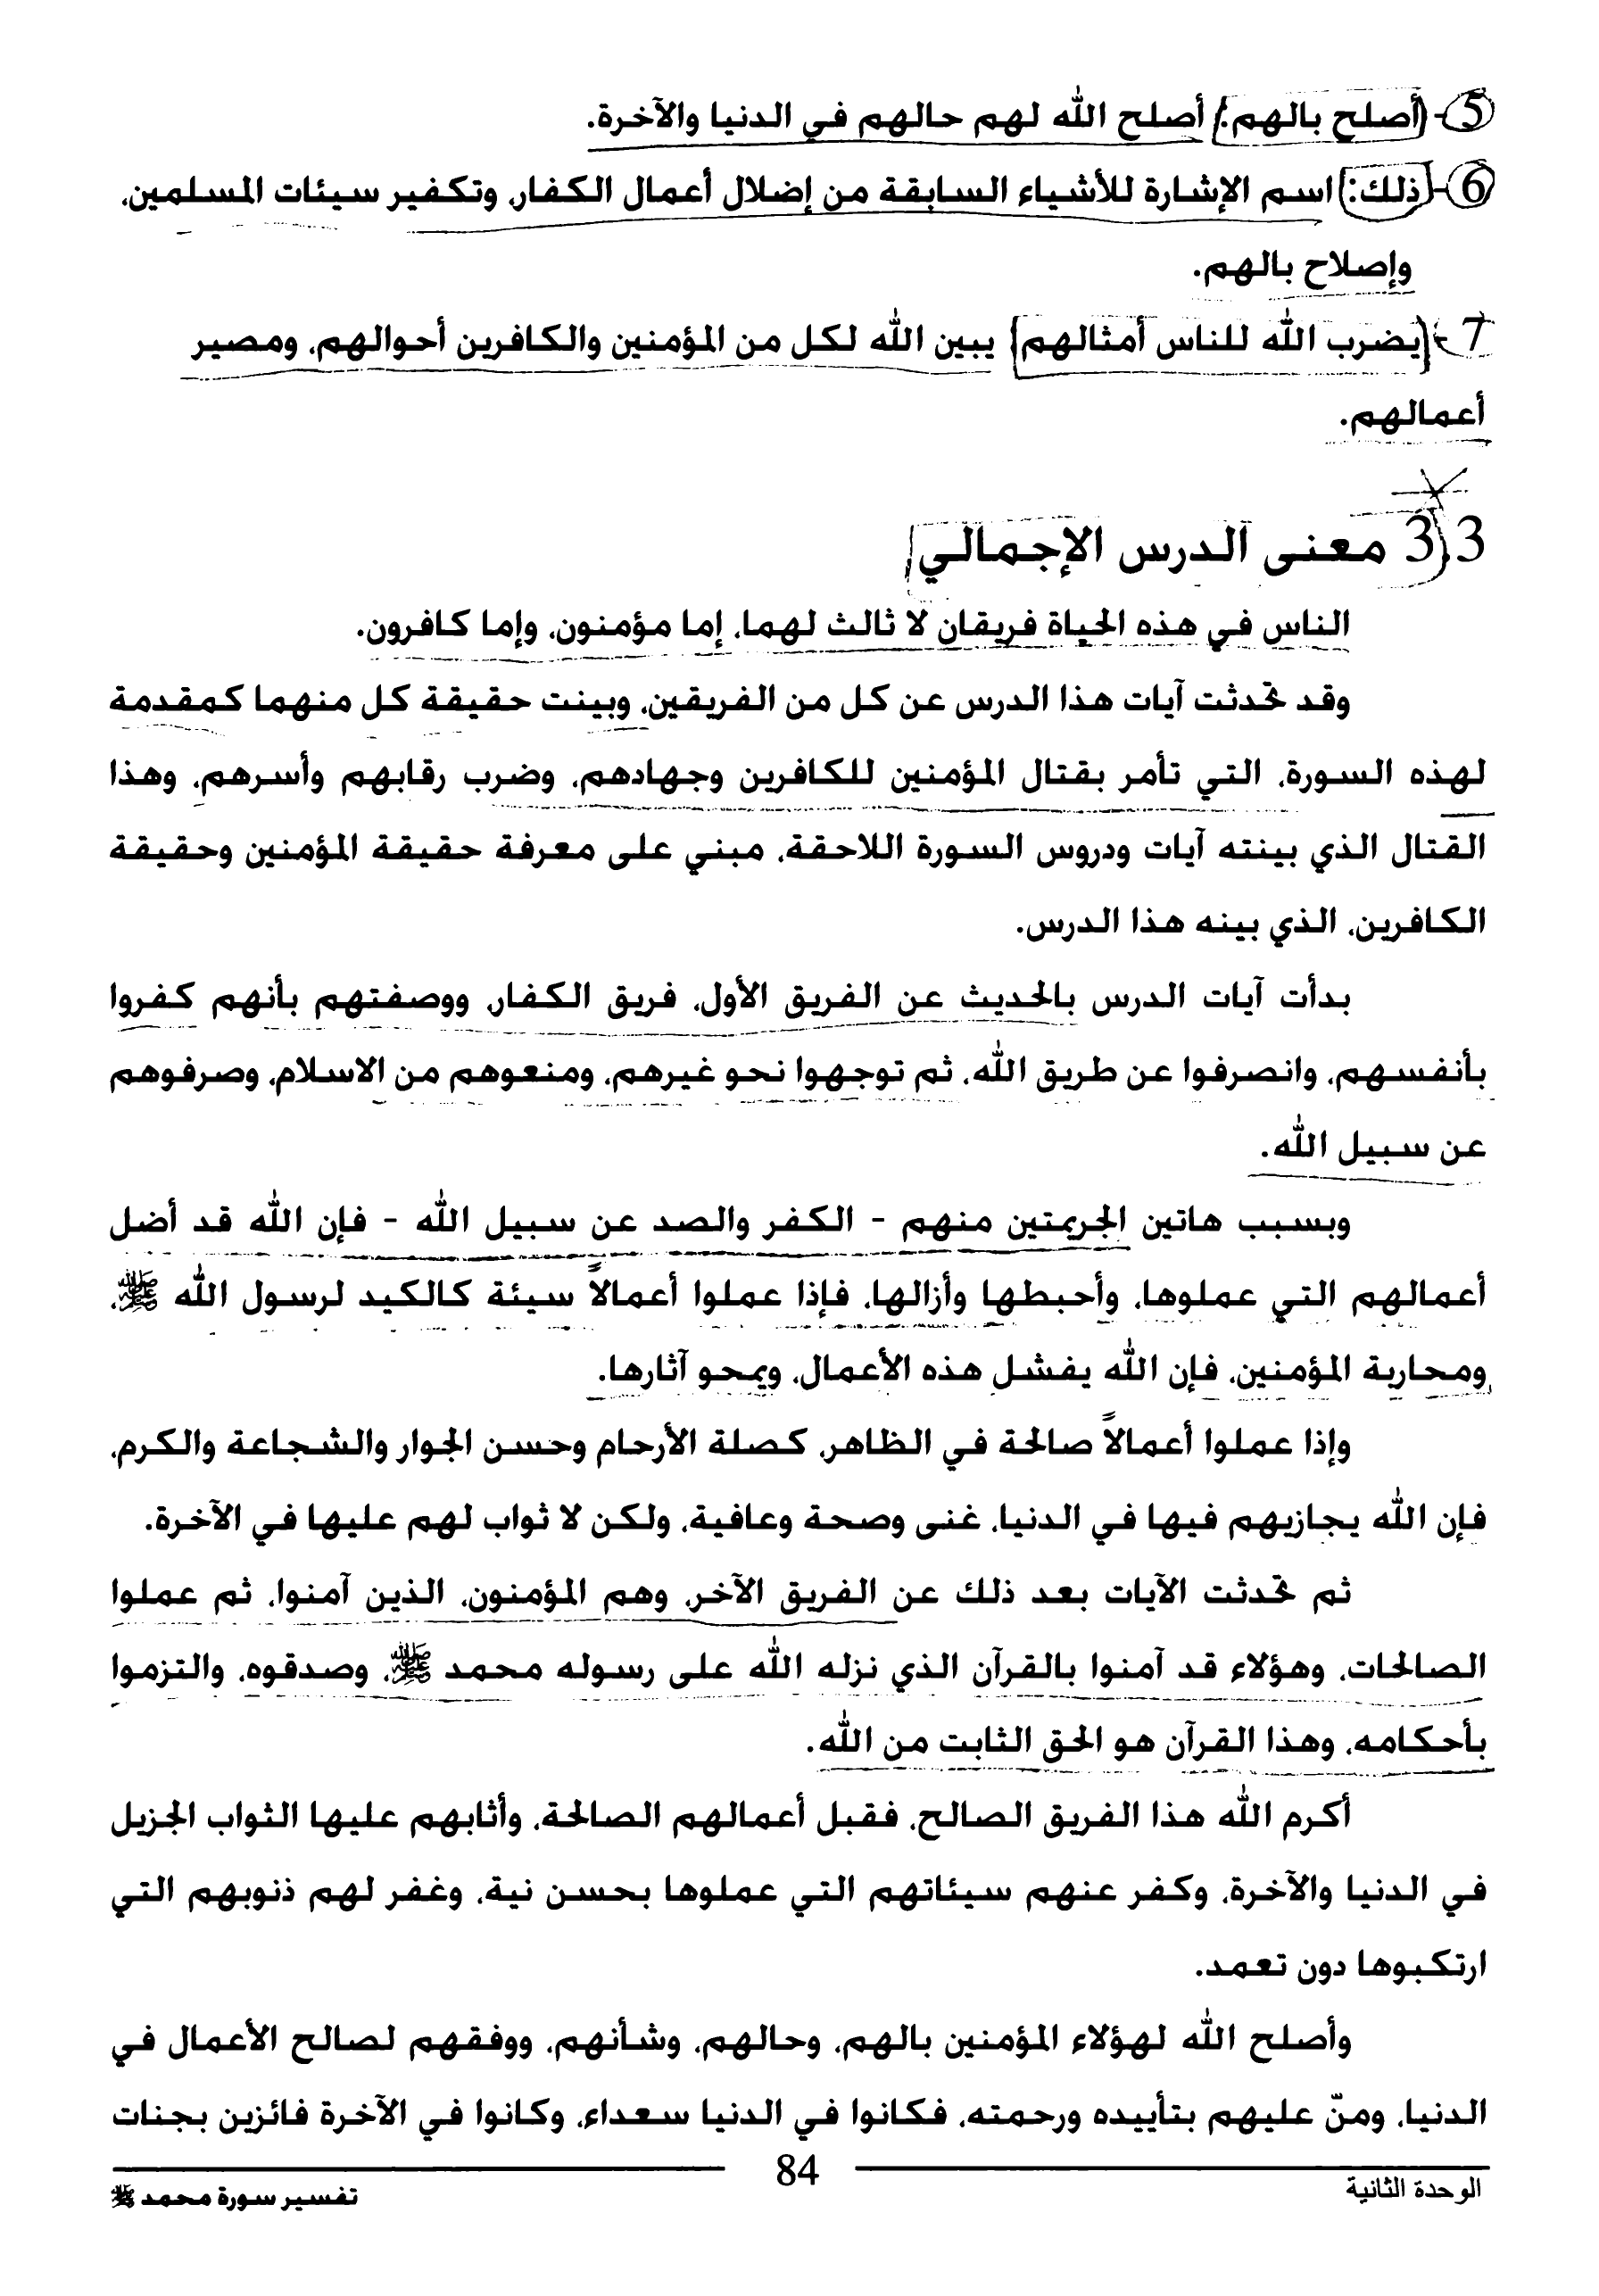 5- (أصلح بالهم:) أصلح الله لهم حالهم في الدنيا والآخرة.
6- (ذلك:) اسم الإشارة للأشياء السابقة من إضلال أعمال الكفار، وتكفير سيئات المسلمين،
وإصلاح بالهم.
7- (يضرب الله للناس أمثالهم) يبين الله لكل من المؤمنين والكافرين أحوالهم، ومصير
أعمالهم.
3.3 معنى الدرس الإجمالي
الناس في هذه الحياة فريقان لا ثالث لهما، إما مؤمنون، وإما كافرون.
وقد تحدثت آيات هذا الدرس عن كل من الفريقين، وبينت حقيقة كل منهما كمقدمة
لهذه السورة، التي تأمر بقتال المؤمنين للكافرين وجهادهم، وضرب رقابهم وأسرهم، وهذا
القتال الذي بينته آيات ودروس السورة اللاحقة، مبني على معرفة حقيقة المؤمنين وحقيقة
الكافرين، الذي بينه هذا الدرس.
بدأت آيات الدرس بالحديث عن الفريق الأول، فريق الكفار، ووصفتهم بأنهم كفروا
بأنفسهم، وانصرفوا عن طريق الله، ثم توجهوا نحو غيرهم، ومنعوهم من الاسلام، وصرفوهم
عن سبيل الله.
وبسبب هاتين الجريمتين منهم - الكفر والصد عن سبيل الله - فإن الله قد أضل
أعمالهم التي عملوها، وأحبطها وأزالها، فإذا عملوا أعمالاً سيئة كالكيد لرسول الله ﷺ،
ومحاربة المؤمنين، فإن الله يفشل هذه الأعمال، ويمحو آثارها.
وإذا عملوا أعمالاً صالحة في الظاهر، كصلة الأرحام وحسن الجوار والشجاعة والكرم،
فإن الله يجازيهم فيها في الدنيا، غنى وصحة وعافية، ولكن لا ثواب لهم عليها في الآخرة.
ثم تحدثت الآيات بعد ذلك عن الفريق الآخر، وهم المؤمنون، الذين آمنوا، ثم عملوا
الصالحات، وهؤلاء قد آمنوا بالقرآن الذي نزله الله على رسوله محمد ﷺ، وصدقوه، والتزموا
بأحكامه، وهذا القرآن هو الحق الثابت من الله.
أكرم الله هذا الفريق الصالح، فقبل أعمالهم الصالحة، وأثابهم عليها الثواب الجزيل
في الدنيا والآخرة، وكفر عنهم سيئاتهم التي عملوها بحسن نية، وغفر لهم ذنوبهم التي
ارتكبوها دون تعمد.
وأصلح الله لهؤلاء المؤمنين بالهم، وحالهم، وشأنهم، ووفقهم لصالح الأعمال في
الدنيا، ومنّ عليهم بتأييده ورحمته، فكانوا في الدنيا سعداء، وكانوا في الآخرة فائزين بجنات
الوحدة الثانية
84
تفسير سورة محمد ﷺ